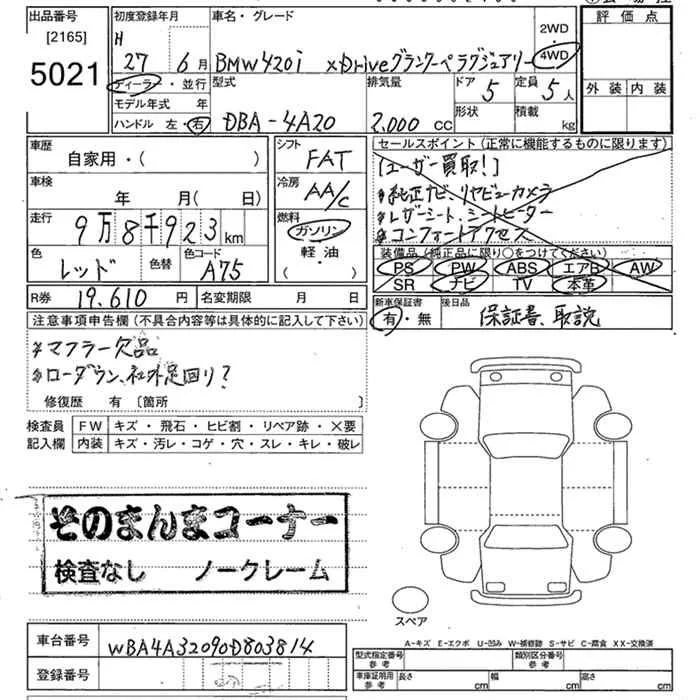 出品番号
[2165]
5021
初度登録年月
H
27年 6月
ディーラー・並行
モデル年式 年
ハンドル 左・右
車名・グレード
BMW420i xDriveグランクーペラグジュアリー
2WD
・
4WD
型式
DBA-4A20
排気量
2.000 cc
ドア 5
形状
定員 5人
積載 kg
評価点
外装 内装
車歴
自家用・( )
車検
年 月( 日)
走行
9万8千923km
色
レッド
色替
色コード
A75
シフト
FAT
冷房
AA/C
燃料
ガソリン
・
軽油
( )
セールスポイント(正常に機能するものに限ります)
[ユーザー買取!]
*純正ナビ、リヤビューカメラ
*レザーシート、シートヒーター
*コンフォートアクセス
装備品(純正品に限り○をつけてください)
PS PW ABS エアB AW
SR ナビ TV 本革
R券 19.610 円 名変期限 月 日
新車保証書
有・無
後日品
保証書、取説
注意事項申告欄(不具合内容等は具体的に記入して下さい)
*マフラー欠品
*ローダウン、社外足回り?
修復歴 有〔箇所 〕
検査員
記入欄
FW キズ・飛石・ヒビ割・リペア跡・×要
内装 キズ・汚レ・コゲ・穴・スレ・キレ・破レ
そのまんまコーナー
検査なし ノークレーム
スペア
A-キズ E-エクボ U-凹み W-補修跡 S-サビ C-腐食 XX-交換済
車台番号 WBA4A32090D803814
登録番号
型式指定番号
参考
類別区分番号
参考
車庫証明用
参考
長さ cm 幅 cm 高さ cm